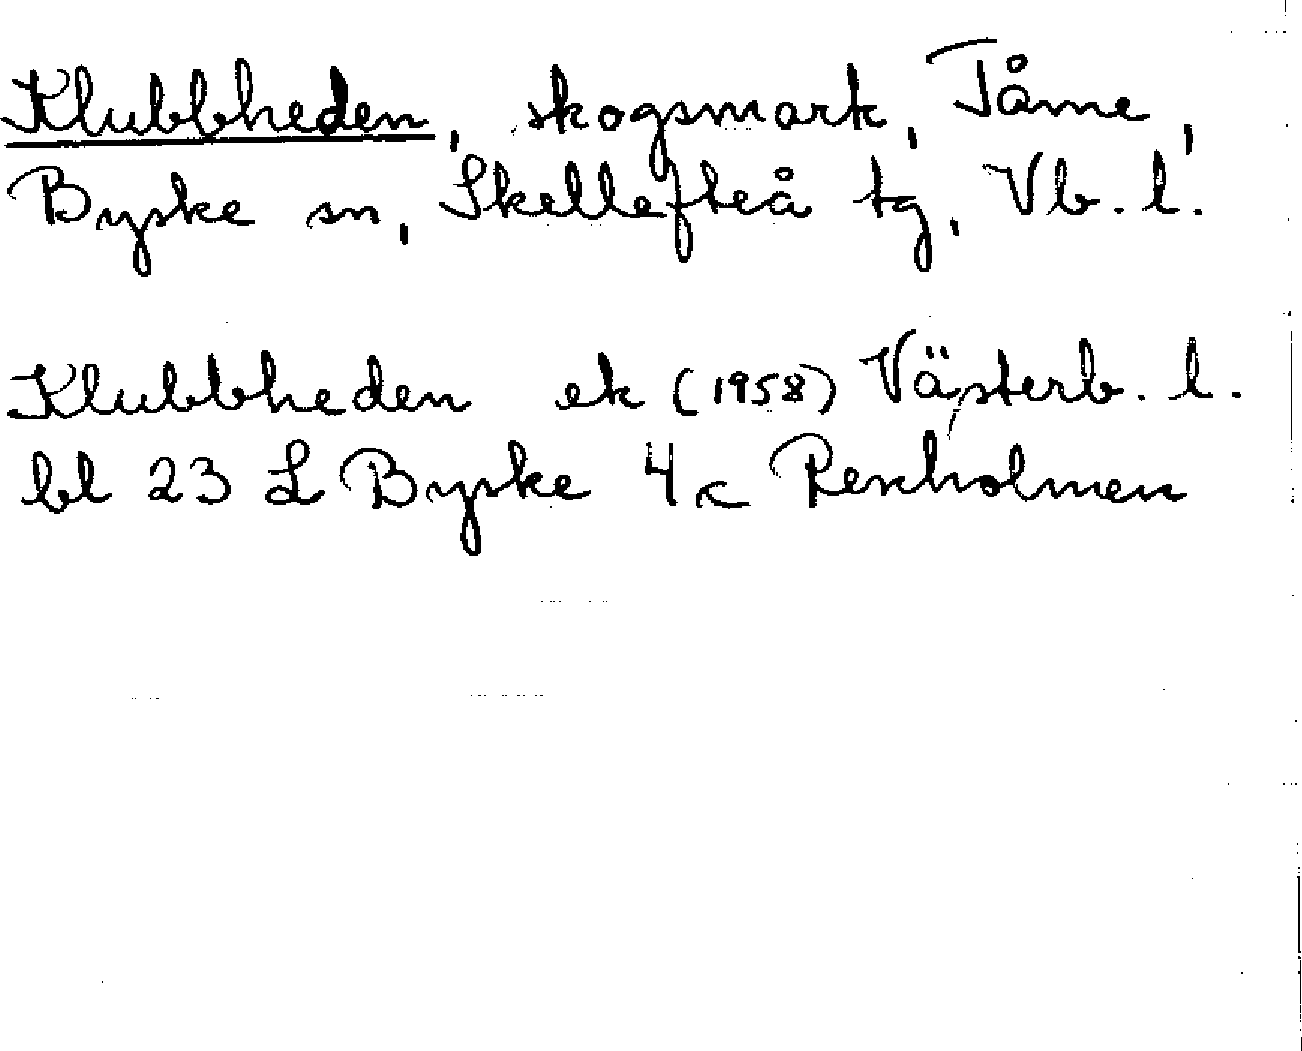 Klubbheden, skogsmark, Tåme,
Byske sn, Skellefteå tg, Vb. l.
Klubbheden ek (1958) Västerb. l.
bl 23 L Byske 4c Renholmen